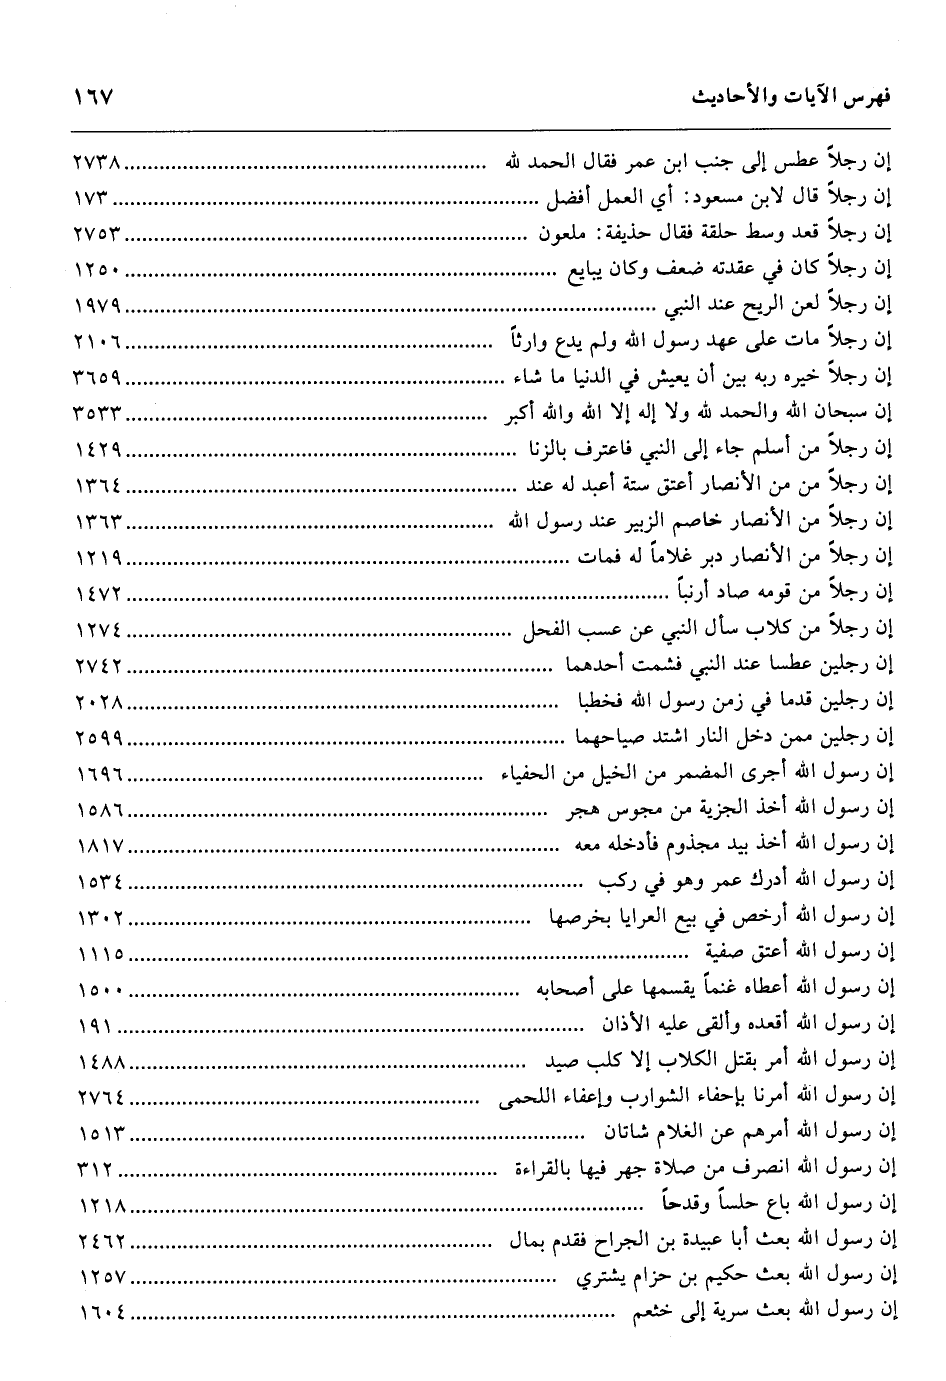 فهرس الآيات والأحاديث ١٦٧
إن رجلاً عطس إلى جنب ابن عمر فقال الحمد لله ٢٧٣٨
إن رجلاً قال لابن مسعود: أي العمل أفضل ١٧٣
إن رجلاً قعد وسط حلقة فقال حذيفة: ملعون ٢٧٥٣
إن رجلاً كان في عقدته ضعف وكان يبايع ١٢٥٠
إن رجلاً لعن الريح عند النبي ١٩٧٩
إن رجلاً مات على عهد رسول الله ولم يدع وارثاً ٢١٠٦
إن رجلاً خيره ربه بين أن يعيش في الدنيا ما شاء ٣٦٥٩
إن سبحان الله والحمد لله ولا إله إلا الله والله أكبر ٣٥٣٣
إن رجلاً من أسلم جاء إلى النبي فاعترف بالزنا ١٤٢٩
إن رجلاً من من الأنصار أعتق ستة أعبد له عند ١٣٦٤
إن رجلاً من الأنصار خاصم الزبير عند رسول الله ١٣٦٣
إن رجلاً من الأنصار دبر غلاماً له فمات ١٢١٩
إن رجلاً من قومه صاد أرنباً ١٤٧٢
إن رجلاً من كلاب سأل النبي عن عسب الفحل ١٢٧٤
إن رجلين عطسا عند النبي فشمت أحدهما ٢٧٤٢
إن رجلين قدما في زمن رسول الله فخطبا ٢٠٢٨
إن رجلين ممن دخل النار اشتد صياحهما ٢٥٩٩
إن رسول الله أجرى المضمر من الخيل من الحفياء ١٦٩٦
إن رسول الله أخذ الجزية من مجوس هجر ١٥٨٦
إن رسول الله أخذ بيد مجذوم فأدخله معه ١٨١٧
إن رسول الله أدرك عمر وهو في ركب ١٥٣٤
إن رسول الله أرخص في بيع العرايا بخرصها ١٣٠٢
إن رسول الله أعتق صفية ١١١٥
إن رسول الله أعطاه غنماً يقسمها على أصحابه ١٥٠٠
إن رسول الله أقعده وألقى عليه الأذان ١٩١
إن رسول الله أمر بقتل الكلاب إلا كلب صيد ١٤٨٨
إن رسول الله أمرنا بإحفاء الشوارب وإعفاء اللحمى ٢٧٦٤
إن رسول الله أمرهم عن الغلام شاتان ١٥١٣
إن رسول الله انصرف من صلاة جهر فيها بالقراءة ٣١٢
إن رسول الله باع حلساً وقدحاً ١٢١٨
إن رسول الله بعث أبا عبيدة بن الجراح فقدم بمال ٢٤٦٢
إن رسول الله بعث حكيم بن حزام يشتري ١٢٥٧
إن رسول الله بعث سرية إلى خثعم ١٦٠٤